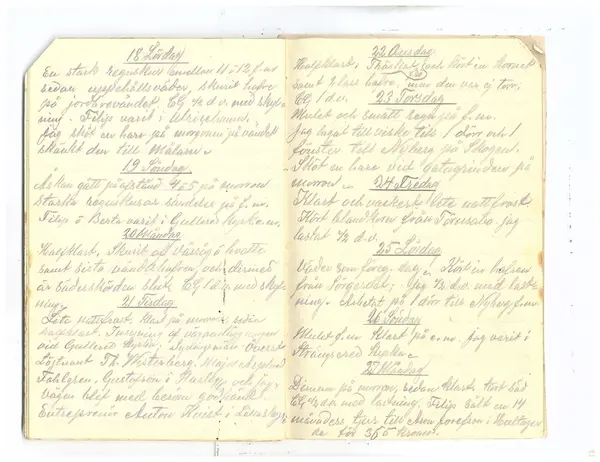 18 Lördag
En stark regnskur emellan 11 o 12 f.m.
sedan uppehållsväder, skurit hafre
på jordarevändet Eg ½ d.v. med skyl-
ning. Filip varit i Ulricehamn.
Jag sköt en hare på morgonen på vändet
skänkt den till Målarn
19 Söndag
Åskan gått på afstånd 4 o 5 på morron
starka regnskurar särdeles på f.m.
Filip o Berta varit i Gullered kyrka e.m.
20 Måndag
Halfklart, Skurit
samt sista vändehafren, och dermed
är sädesskörden slut Eg 1 d.v. med skyl-
ning.
21 Tisdag
Lite nattfrost, klart på morron, sedan
halfklart, Insyning af vägen
vid Gullered Kyrka, Synemän Överste
Löjtnant Th. Westerberg, Major
Fahlgren, Gustafson i och jag,
vägen blef med beröm godkänd
Entreprenör Anton
22 Onsdag
Halfklart, Thröskat och kört in kornet
samt 2 lass hafre, men den var ej torr,
Eg 1 d.v.
23 Torsdag
Mulet och smått regn på f.m.
Jag lagat till virke till 1 dörr och 1
fönster till Nyberg på Skogen.
Sköt en hare vid gatugrinden på
morron
24 Fredag
Klart och vackert lite nattfrost
Kört blandkorn från jag
lastat ½ d.v.
25 Lördag
Väder som föreg. dag. Kört in hafren
från Jag ½ d.v. med last-
ning. Arbetat på 1 dörr till Nyberg f.m.
26 Söndag
Mulet f.m. Klart på e.m. Jag varit i
Strängsered Kyrka
27 Måndag
Dimma på morron, sedan klart. Kört säd
Eg ½ d.v. med lastning. Filip sålt en 14
månaders tjur till i
för 355 kronor.